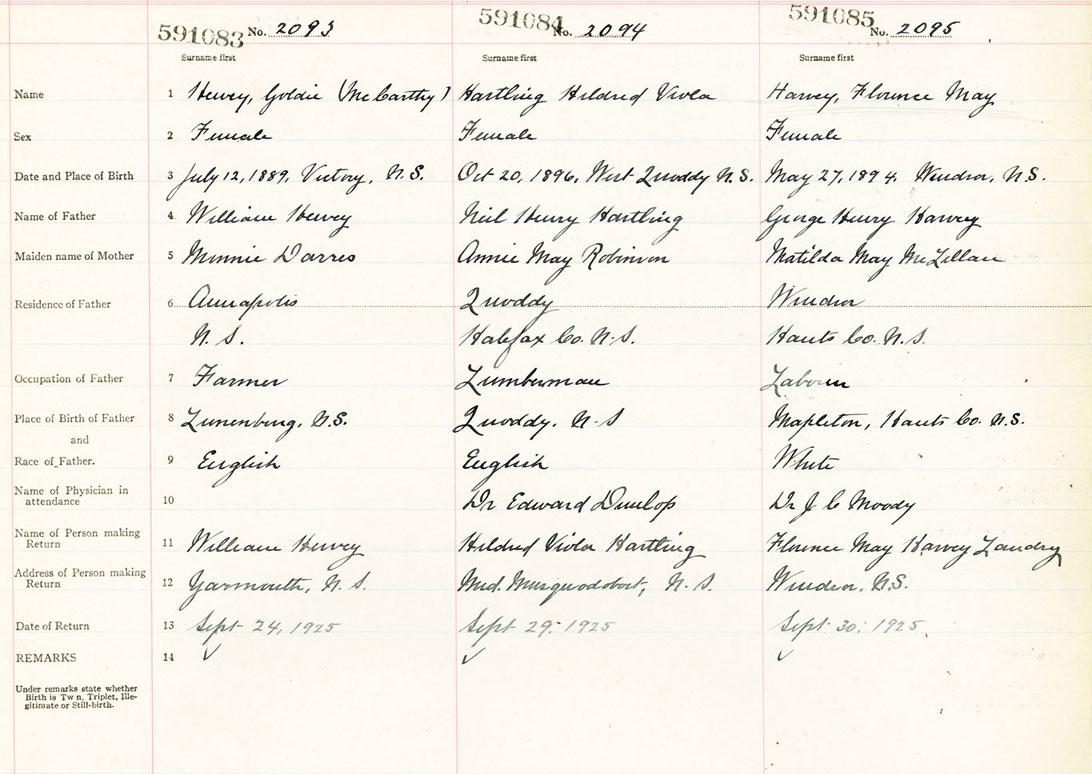 591083 No. 2093 591084 No. 2094 591085 No. 2095
Surname first Surname first Surname first
Name 1 Hewey, Goldie (McCarthy) Hartling Hildred Viola Harvey, Florence May
Sex 2 Female Female Female
Date and Place of Birth 3 July 12, 1889, Victory, N.S. Oct 20, 1896, West Quoddy N.S. May 27, 1894. Windsor, N.S.
Name of Father 4 William Hewey Neil Henry Hartling George Henry Harvey
Maiden name of Mother 5 Minnie Darres Annie May Robinson Matilda May McLellan
Residence of Father 6 Annapolis Quoddy Windsor
N.S. Halifax Co. N.S. Hants Co. N.S.
Occupation of Father 7 Farmer Lumberman Laborer
Place of Birth of Father 8 Lunenburg, N.S. Quoddy. N.S Mapleton, Hants Co. N.S.
and
Race of Father. 9 English English White
Name of Physician in
attendance 10 Dr Edward Dunlop Dr J C Moody
Name of Person making
Return 11 William Hewey Hildred Viola Hartling Florence May Harvey Landry
Address of Person making
Return 12 Yarmouth, N.S. Mid. Musquodoboit, N.S. Windsor, N.S.
Date of Return 13 Sept 24, 1925 Sept 29. 1925 Sept. 30. 1925
REMARKS 14
Under remarks state whether
Birth is Tw n, Triplet, Ille-
gitimate or Still-birth.